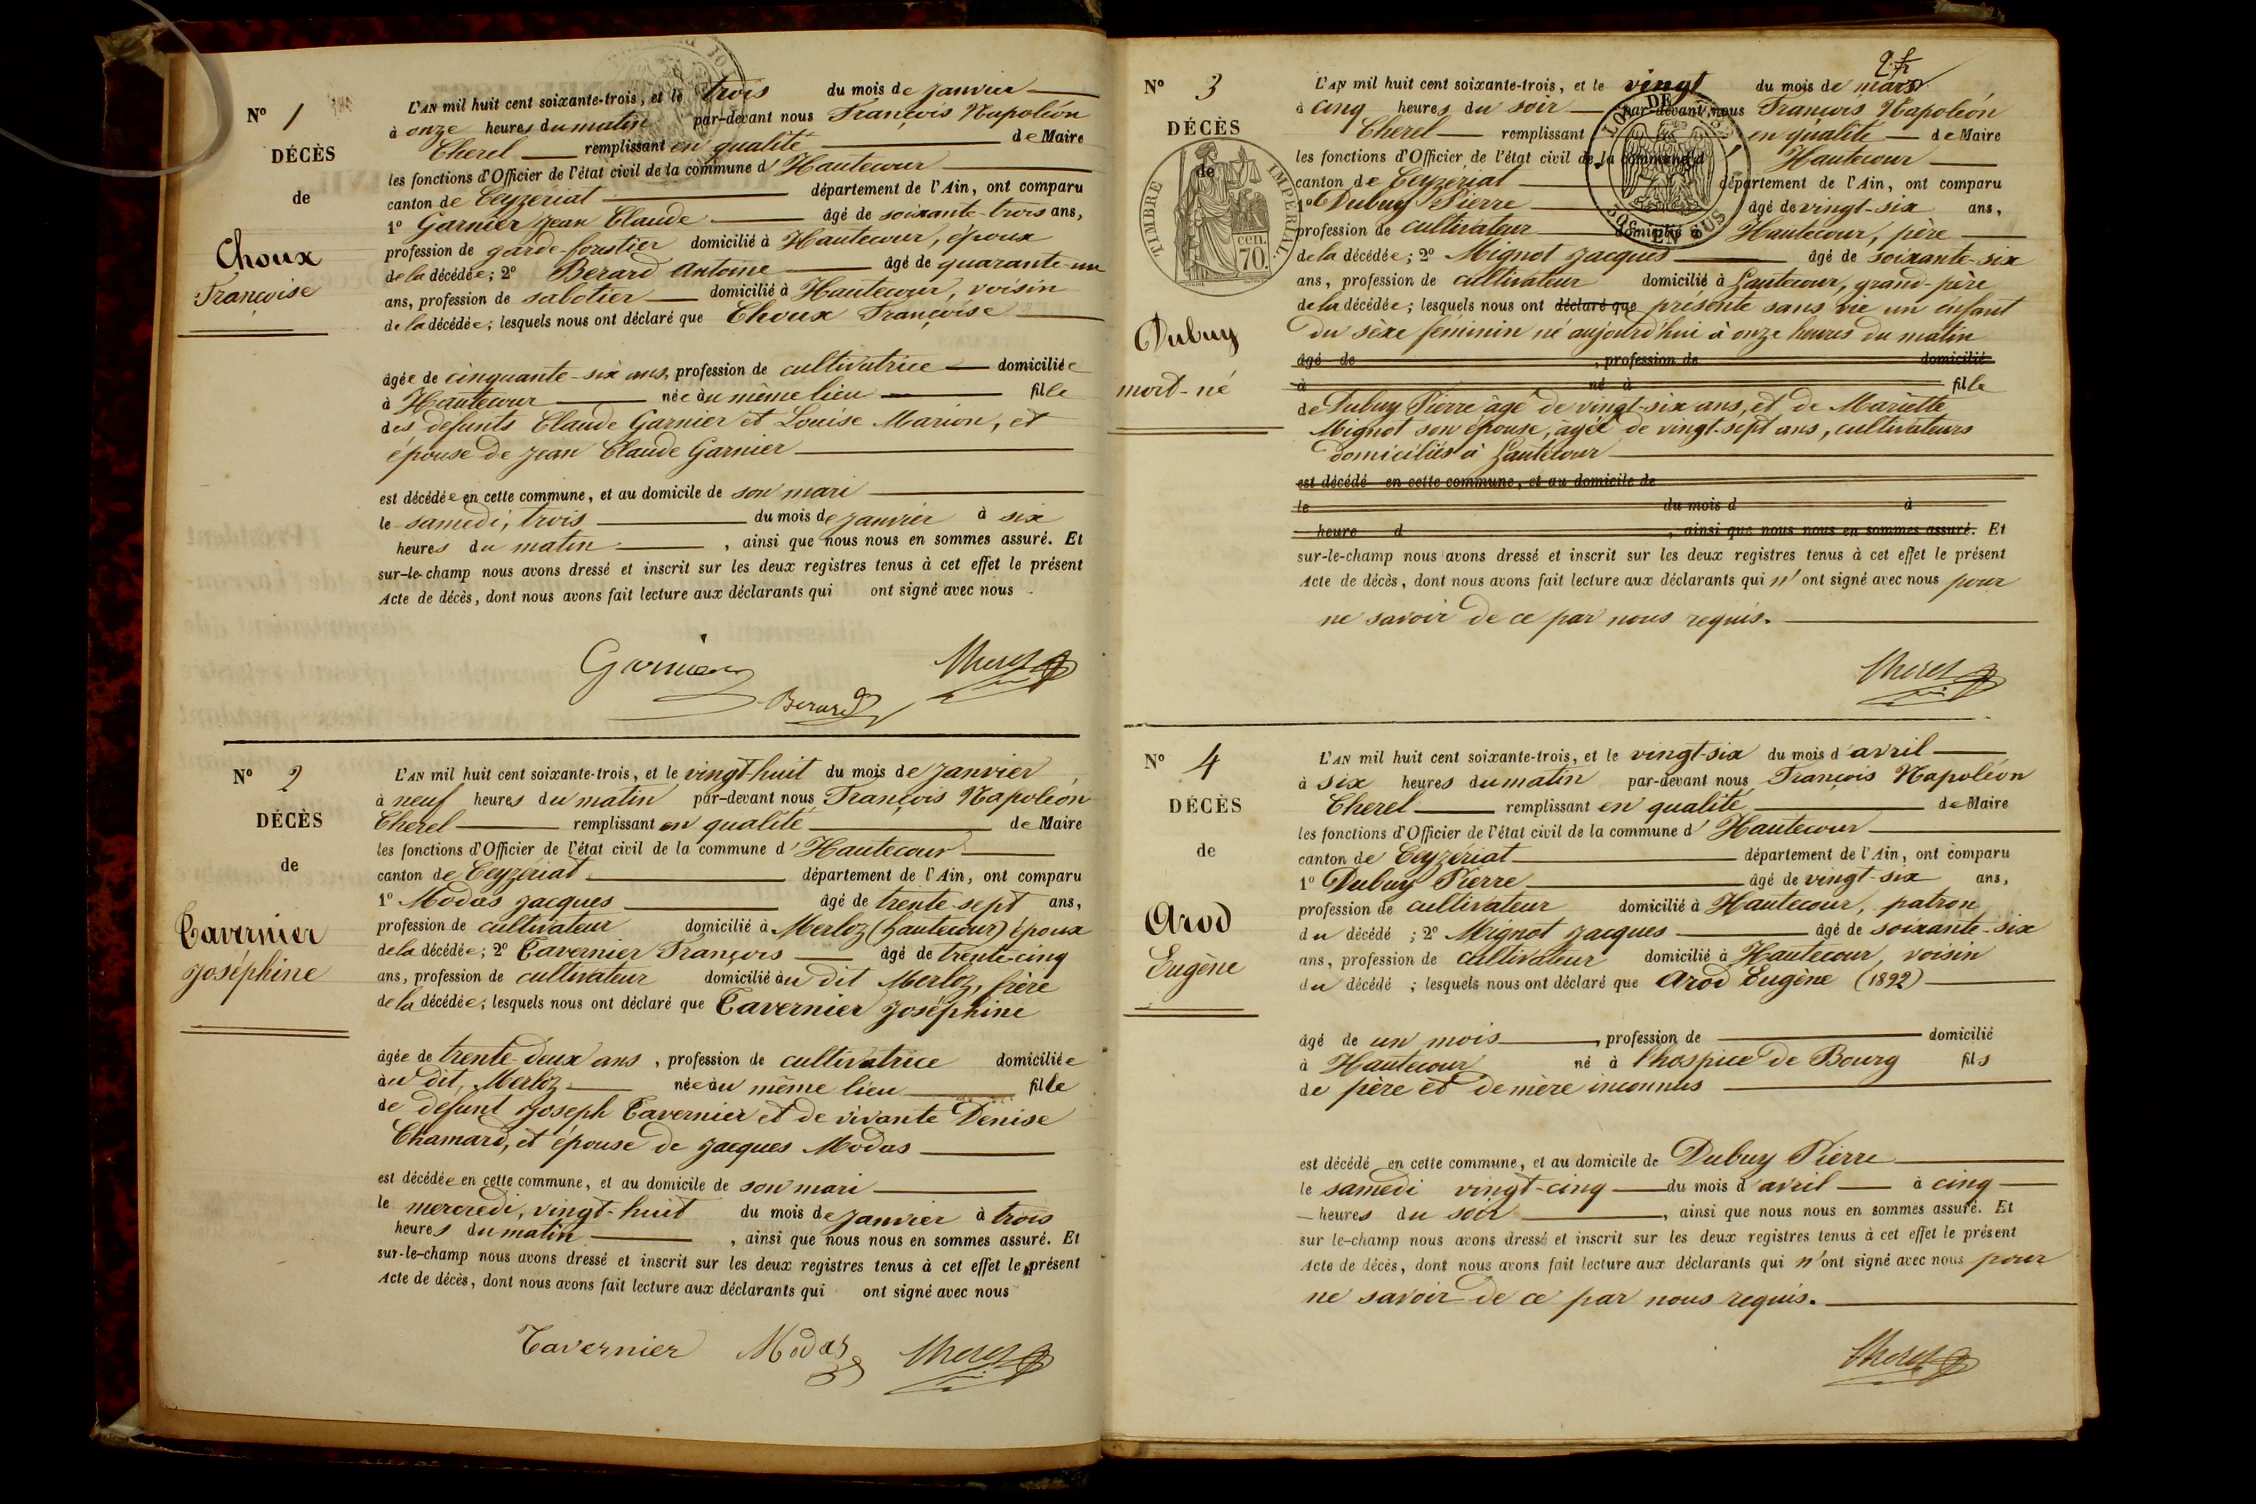 Nº 1
DÉCÈS
de
Choux
Françoise
L'AN mil huit cent soixante-trois, et le trois du mois de janvier
à onze heures du matin par-devant nous François Napoléon
Cherel remplissant en qualité de Maire
les fonctions d'Officier de l'état civil de la commune d'Hautecour
canton de Ceyzériat département de l'Ain, ont comparu
1º Garnier Jean Claude âgé de soixante-trois ans,
profession de garde-forestier domicilié à Hautecour, époux
de la décédée; 2º Berard Antoine âgé de quarante-un
ans, profession de sabotier domicilié à Hautecour, voisin
de la décédée; lesquels nous ont déclaré que Choux Françoise
âgée de cinquante-six ans, profession de cultivatrice domiciliée
à Hautecour née au même lieu fille
des defunts Claude Garnier et Louise Marion, et
épouse de Jean Claude Garnier
est décédée en cette commune, et au domicile de son mari
le samedi, trois du mois de janvier à six
heures du matin, ainsi que nous nous en sommes assuré. Et
sur-le-champ nous avons dressé et inscrit sur les deux registres tenus à cet effet le présent
Acte de décès, dont nous avons fait lecture aux déclarants qui ont signé avec nous
Garnier Cherel
Berard
Nº 2
DÉCÈS
de
Tavernier
Joséphine
L'AN mil huit cent soixante-trois, et le vingt-huit du mois de janvier
à neuf heures du matin par-devant nous François Napoléon
Cherel remplissant en qualité de Maire
les fonctions d'Officier de l'état civil de la commune d'Hautecour
canton de Ceyzériat département de l'Ain, ont comparu
1º Modas Jacques âgé de trente-sept ans,
profession de cultivateur domicilié à Merloz (hautecour) époux
de la décédée; 2º Tavernier François âgé de trente-cinq
ans, profession de cultivateur domicilié au dit Merloz, frère
de la décédée; lesquels nous ont déclaré que Tavernier Joséphine
âgée de trente-deux ans, profession de cultivatrice domiciliée
au dit, Merloz née au même lieu fille
de defunt Joseph Tavernier et de vivante Denise
Chamard, et épouse de Jacques Modas
est décédée en cette commune, et au domicile de son mari
le mercredi, vingt-huit du mois de janvier à trois
heures du matin, ainsi que nous nous en sommes assuré. Et
sur-le-champ nous avons dressé et inscrit sur les deux registres tenus à cet effet le présent
Acte de décès, dont nous avons fait lecture aux déclarants qui ont signé avec nous
Tavernier Modas Cherel
Nº 3
DÉCÈS
de
TIMBRE IMPÉRIAL
cen. 70.
Dubuy
mort-né
L'AN mil huit cent soixante-trois, et le vingt du mois de mars
à cinq heures du soir par-devant nous François Napoléon
Cherel remplissant en qualité de Maire
les fonctions d'Officier de l'état civil de la commune d'Hautecour
canton de Ceyzériat département de l'Ain, ont comparu
1º Dubuy Pierre âgé de vingt-six ans,
profession de cultivateur domicilié à Hautecour, père
de la décédée; 2º Mignot Jacques âgé de soixante-six
ans, profession de cultivateur domicilié à hautecour, grand-père
de la décédée; lesquels nous ont déclaré que présenté sans vie un enfant
du sèxe féminin né aujourd'hui à onze heures du matin
âgé de, profession de domicilié
à né à fille
de Dubuy Pierre âgé de vingt-six ans, et de Mariette
Mignot son épouse, âgée de vingt-sept ans, cultivateurs
domiciliés à hautecour
est décédé en cette commune, et au domicile de
le du mois d à
heure d, ainsi que nous nous en sommes assuré. Et
sur-le-champ nous avons dressé et inscrit sur les deux registres tenus à cet effet le présent
Acte de décès, dont nous avons fait lecture aux déclarants qui n'ont signé avec nous pour
ne savoir de ce par nous requis.
Cherel
Nº 4
DÉCÈS
de
Arod
Eugène
L'AN mil huit cent soixante-trois, et le vingt-six du mois d'avril
à six heures du matin par-devant nous François Napoléon
Cherel remplissant en qualité de Maire
les fonctions d'Officier de l'état civil de la commune d'Hautecour
canton de Ceyzériat département de l'Ain, ont comparu
1º Dubuy Pierre âgé de vingt-six ans,
profession de cultivateur domicilié à Hautecour, patron
du décédé; 2º Mignot Jacques âgé de soixante-six
ans, profession de cultivateur domicilié à Hautecour, voisin
du décédé; lesquels nous ont déclaré que Arod Eugène (1892)
âgé de un mois, profession de domicilié
à Hautecour né à l'hospice de Bourg fils
de père et de mère inconnus
est décédé en cette commune, et au domicile de Dubuy Pierre
le samedi vingt-cinq du mois d'avril à cinq
heures du soir, ainsi que nous nous en sommes assuré. Et
sur le-champ nous avons dressé et inscrit sur les deux registres tenus à cet effet le présent
Acte de décès, dont nous avons fait lecture aux déclarants qui n'ont signé avec nous pour
ne savoir de ce par nous requis.
Cherel